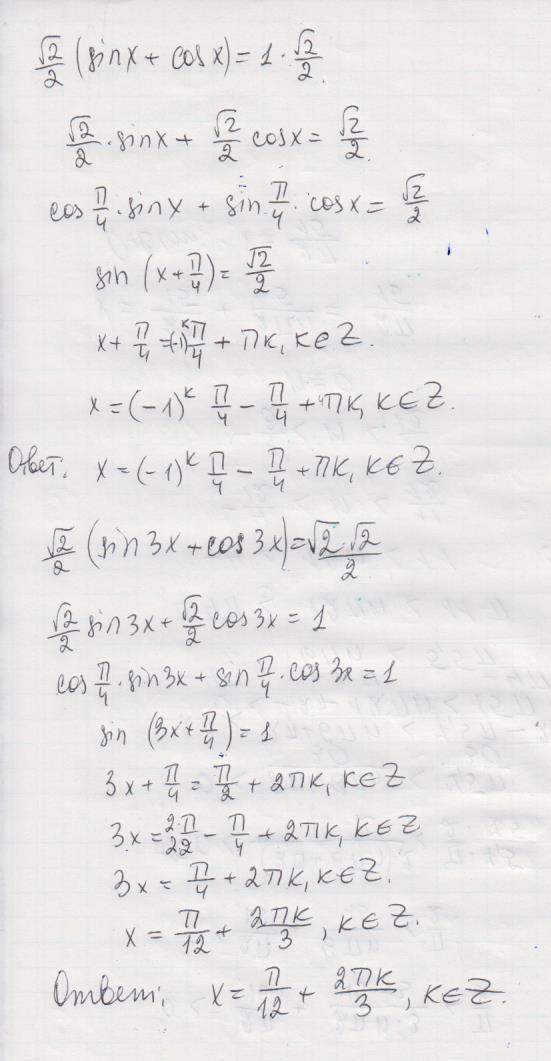 √2/2 (sinx + cosx) = 1 · √2/2.
√2/2 · sinx + √2/2 cosx = √2/2.
cos π/4 · sinx + sin π/4 · cosx = √2/2
sin (x + π/4) = √2/2
x + π/4 = (-1)^k π/4 + πk, k∈Z.
x = (-1)^k π/4 - π/4 + πk, k∈Z.
Ответ. x = (-1)^k π/4 - π/4 + πk, k∈Z.
√2/2 (sin3x + cos3x) = √2·√2/2
√2/2 sin3x + √2/2 cos3x = 1
cos π/4 · sin3x + sin π/4 · cos3x = 1
sin (3x + π/4) = 1
3x + π/4 = π/2 + 2πk, k∈Z
3x = 2·π/22 - π/4 + 2πk, k∈Z
3x = π/4 + 2πk, k∈Z.
x = π/12 + 2πk/3, k∈Z.
Ответ. x = π/12 + 2πk/3, k∈Z.